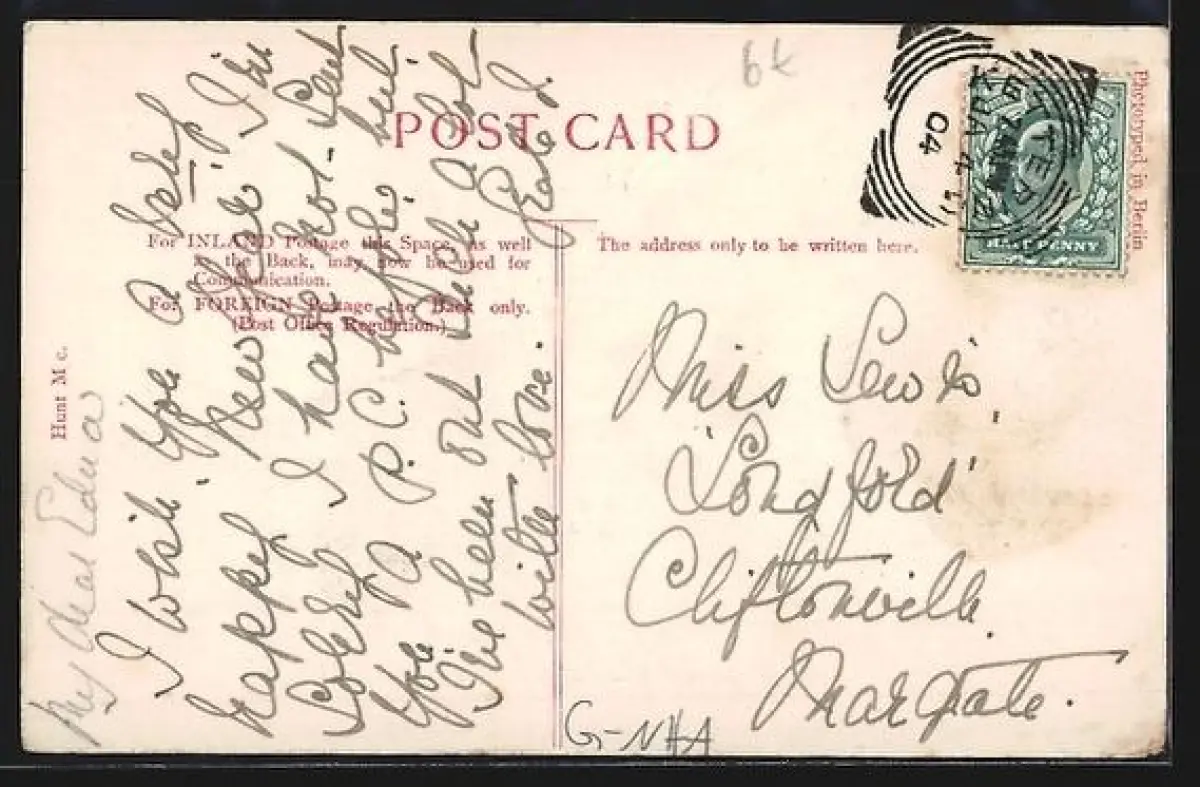 POST CARD
For INLAND Postage this Space, as well
as the Back, may now be used for
Communication.
For FOREIGN Postage the Back only.
(Post Office Regulation.)
The address only to be written here.
Phototyped in Berlin
HALF PENNY
JA 4
04
My dear Edna
I wish you a very
happy New Year. I'm
sorry I have not sent
you a P.C. before but
I've been out such a lot
with love. Gerald.
Miss Lewis,
'Longford'
Cliftonville.
Margate.
G-NHA